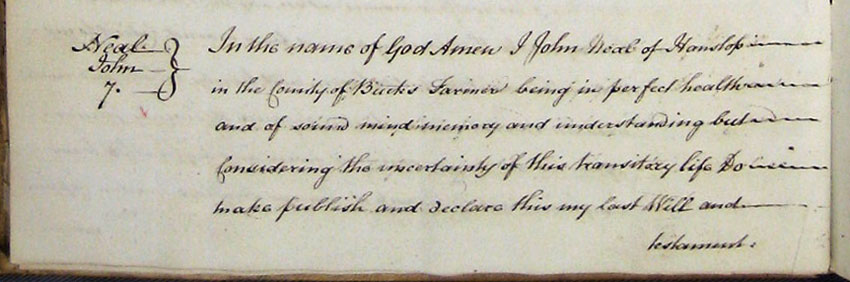 Neal
John
7.
In the name of God Amen I John Neal of Hanslop
in the County of Bucks Farmer being in perfect health
and of sound mind memory and understanding but
Considering the uncertainty of this transitory life Do
make publish and declare this my last Will and
testament.